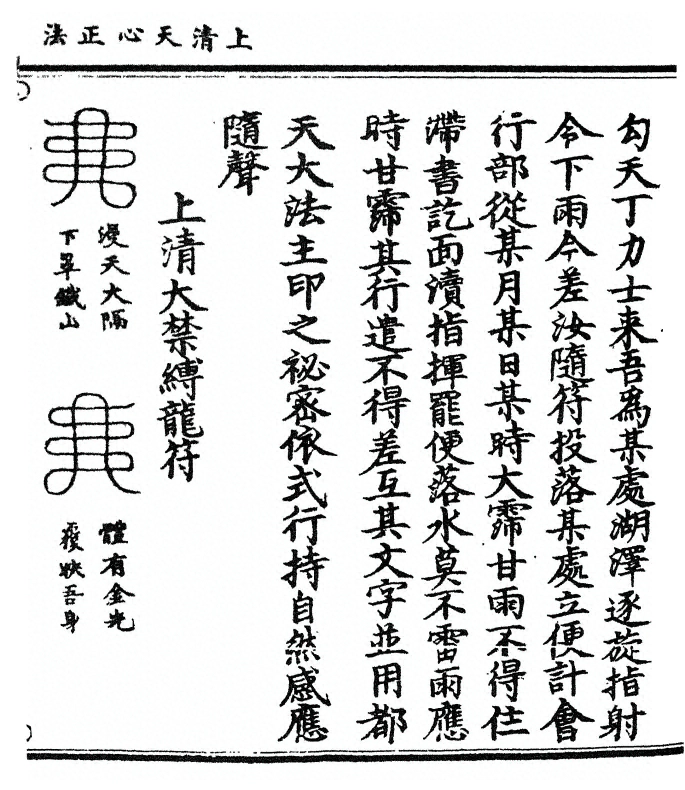 上清天心正法
勾天丁力士来吾為某處湖澤逐旋指射
令下雨今差汝隨符投落某處立便計會
行部從某月某日某時大霈甘雨不得住
滯書訖面瀆指揮罷便落水莫不雷雨應
時甘霈其行遣不得差互其文字並用都
天大法主印之祕密依式行持自然感應
隨聲
上清大禁縛龍符
漫天大隔
下罩鐵山
體有金光
覆映吾身